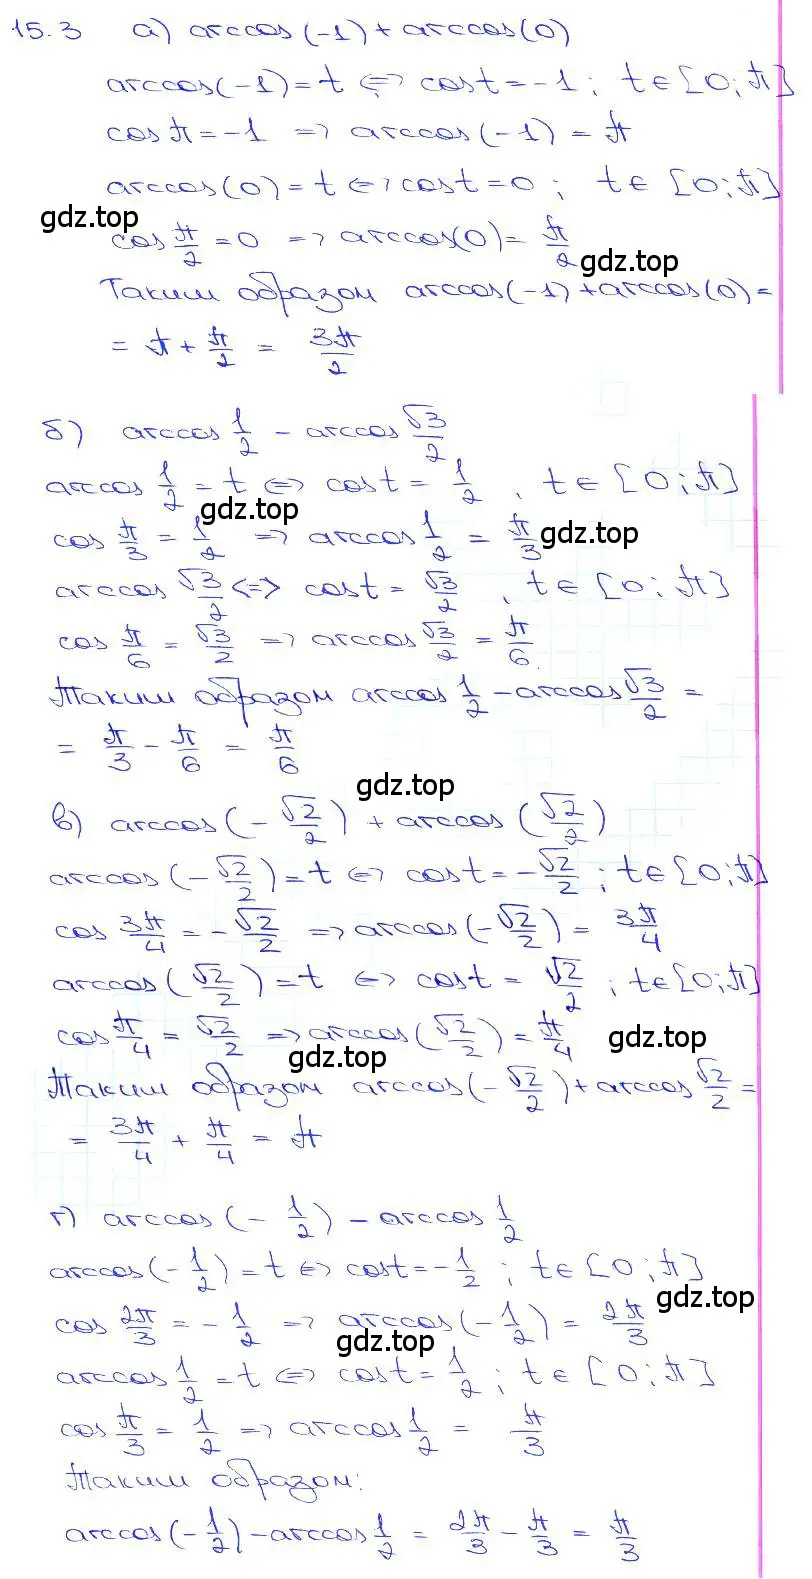 15.3 а) arccos(-1) + arccos(0)
arccos(-1) = t <=> cos t = -1 ; t ∈ [0; π]
cos π = -1 => arccos(-1) = π
arccos(0) = t <=> cos t = 0 ; t ∈ [0; π]
gdz.top
cos π/2 = 0 => arccos(0) = π/2
gdz.top
Таким образом arccos(-1) + arccos(0) =
= π + π/2 = 3π/2
б) arccos 1/2 - arccos √3/2
arccos 1/2 = t <=> cos t = 1/2 , t ∈ [0; π]
gdz.top
cos π/3 = 1/2 => arccos 1/2 = π/3
gdz.top
arccos √3/2 <=> cos t = √3/2 , t ∈ [0; π]
cos π/6 = √3/2 => arccos √3/2 = π/6
Таким образом arccos 1/2 - arccos √3/2 =
= π/3 - π/6 = π/6
gdz.top
в) arccos(-√2/2) + arccos(√2/2)
arccos(-√2/2) = t <=> cos t = -√2/2 ; t ∈ [0; π]
cos 3π/4 = -√2/2 => arccos(-√2/2) = 3π/4
arccos(√2/2) = t <=> cos t = √2/2 ; t ∈ [0; π]
cos π/4 = √2/2 => arccos(√2/2) = π/4
gdz.top
gdz.top
Таким образом arccos(-√2/2) + arccos √2/2 =
= 3π/4 + π/4 = π
г) arccos(-1/2) - arccos 1/2
arccos(-1/2) = t <=> cos t = -1/2 ; t ∈ [0; π]
gdz.top
cos 2π/3 = -1/2 => arccos(-1/2) = 2π/3
gdz.top
arccos 1/2 = t <=> cos t = 1/2 ; t ∈ [0; π]
cos π/3 = 1/2 => arccos 1/2 = π/3
Таким образом:
arccos(-1/2) - arccos 1/2 = 2π/3 - π/3 = π/3